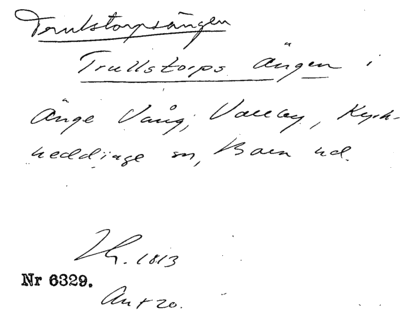 Trulstorpsängen
Trullstorps Ängen i
Änge Vång, Valleby, Kyrk-
heddinge sn, Bara hd.
Lh. 1813
Nr 6329.
Akt 20.